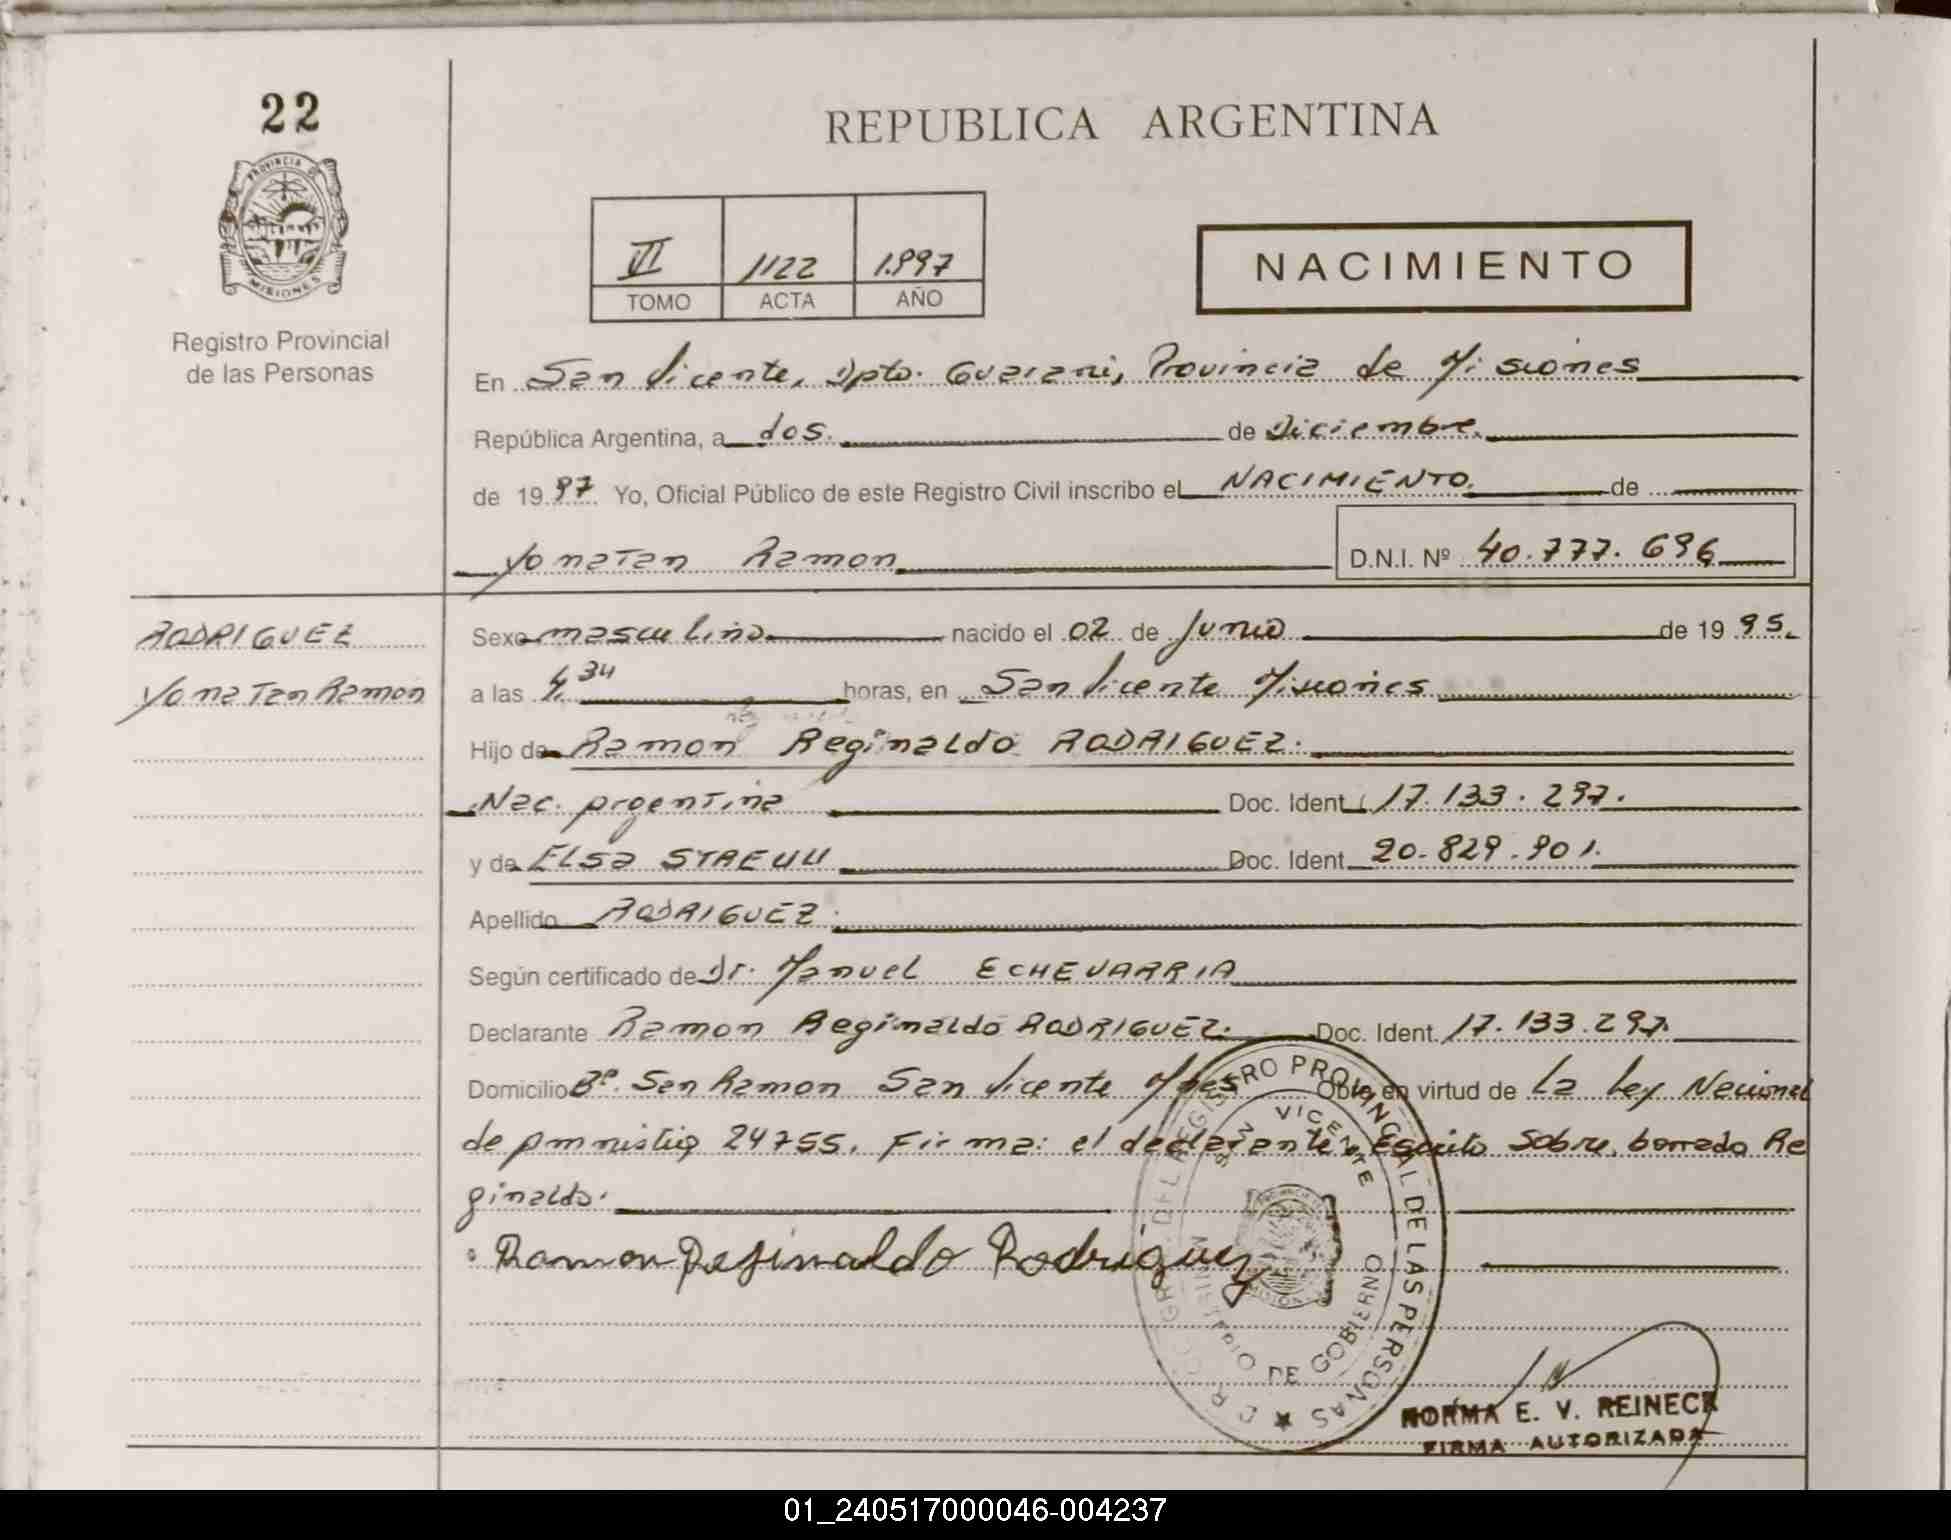 22
PROVINCIA DE
MISIONES
Registro Provincial
de las Personas
REPUBLICA ARGENTINA
VI 1122 1.997
TOMO ACTA AÑO
NACIMIENTO
En San Vicente, Dpto. Guarani, Provincia de Misiones
República Argentina, a dos. de Diciembre.
de 19 97. Yo, Oficial Público de este Registro Civil inscribo el NACIMIENTO. de
Yonatan Ramon D.N.I. Nº 40.777.696
RODRIGUEZ
Yonatan Ramon
Sexo masculino nacido el 02 de Junio de 19 95.
a las 4,34 horas, en San Vicente Misiones
Hijo de Ramon Reginaldo RODRIGUEZ.
Nac. Argentina Doc. Ident. 17.133.297.
y de Elsa Doc. Ident. 20.829.901.
Apellido RODRIGUEZ.
Según certificado de Dr. Manuel ECHEVARRIA
Declarante Ramon Reginaldo RODRIGUEZ. Doc. Ident. 17.133.297.
Domicilio Bº. San Ramon San Vicente Mnes Obra en virtud de La Ley Nacional
de Amnistia 24755. Firma: el declarante. Escrito sobre borrado Re
ginaldo.
Ramon Reginaldo Rodriguez
REGISTRO PROVINCIAL DE LAS PERSONAS
SAN VICENTE
MINISTERIO DE GOBIERNO
NORMA E. V. REINECK
FIRMA AUTORIZADA
01_240517000046-004237